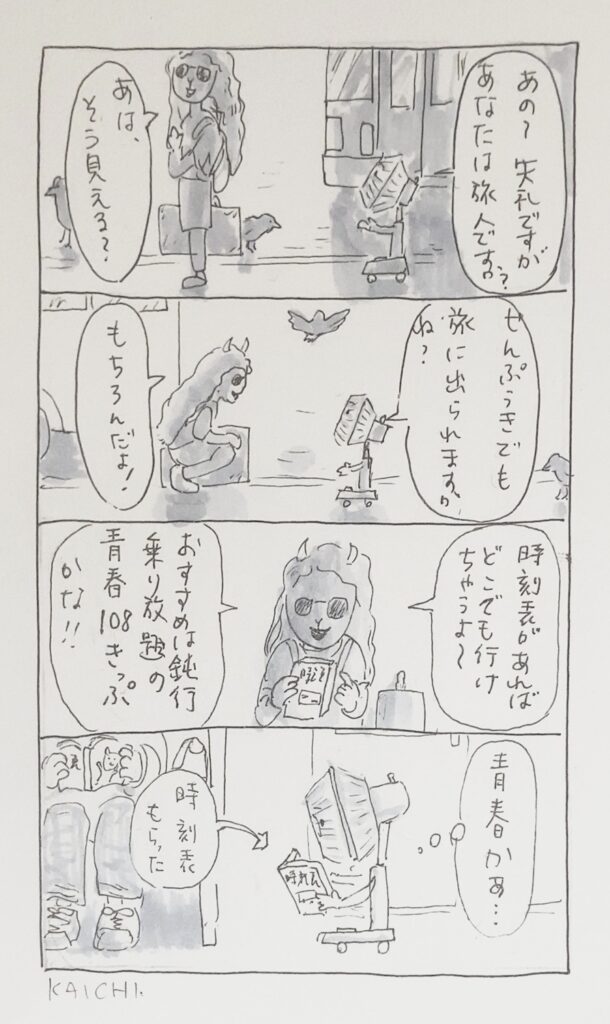 あの〜失礼ですが
あなたは旅人ですか?
あは、
そう見える?
ぜんぷうきでも
旅に出られますか
ね?
もちろんだよ!
時刻表があれば
どこでも行け
ちゃうよ〜
おすすめは鈍行
乗り放題の
青春108きっぷ
かな!!
青春かぁ…
時刻表
もらった
時刻表
KAICHI.